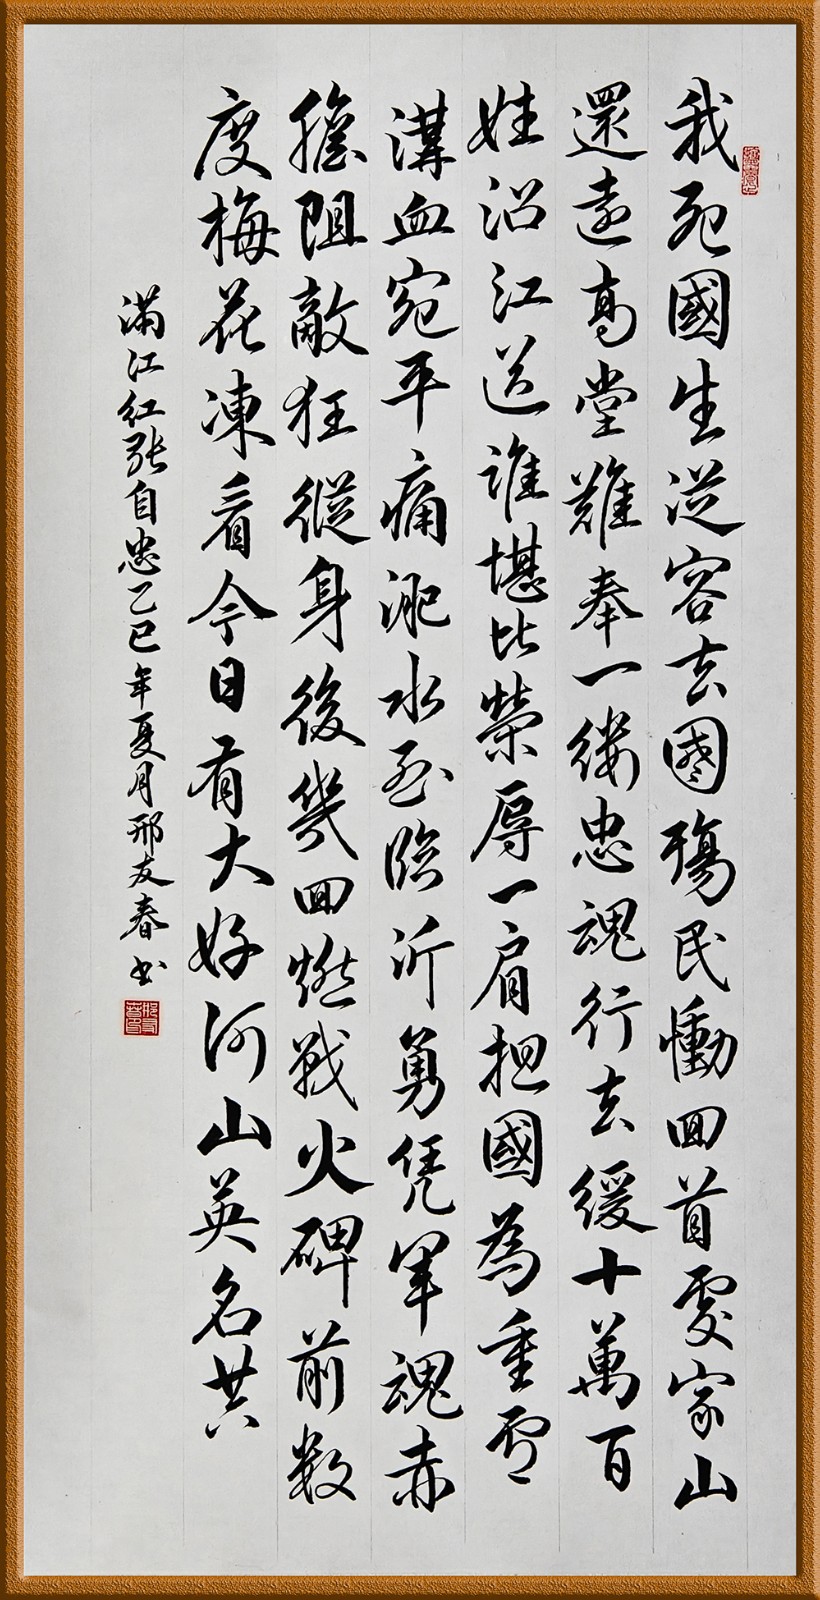 我死國生從容去國殤民慟回首處家山
還遠高堂難奉一縷忠魂行去緩十萬百
姓沿江送誰堪比榮辱一肩担國為重盧
溝血宛平痛淝水臨沂勇凭軍魂赤
膽阻敵狂縱身後幾回燃戰火碑前数
度梅花凍看今日有大好河山英名共
满江红張自忠乙巳年夏月邢友春书